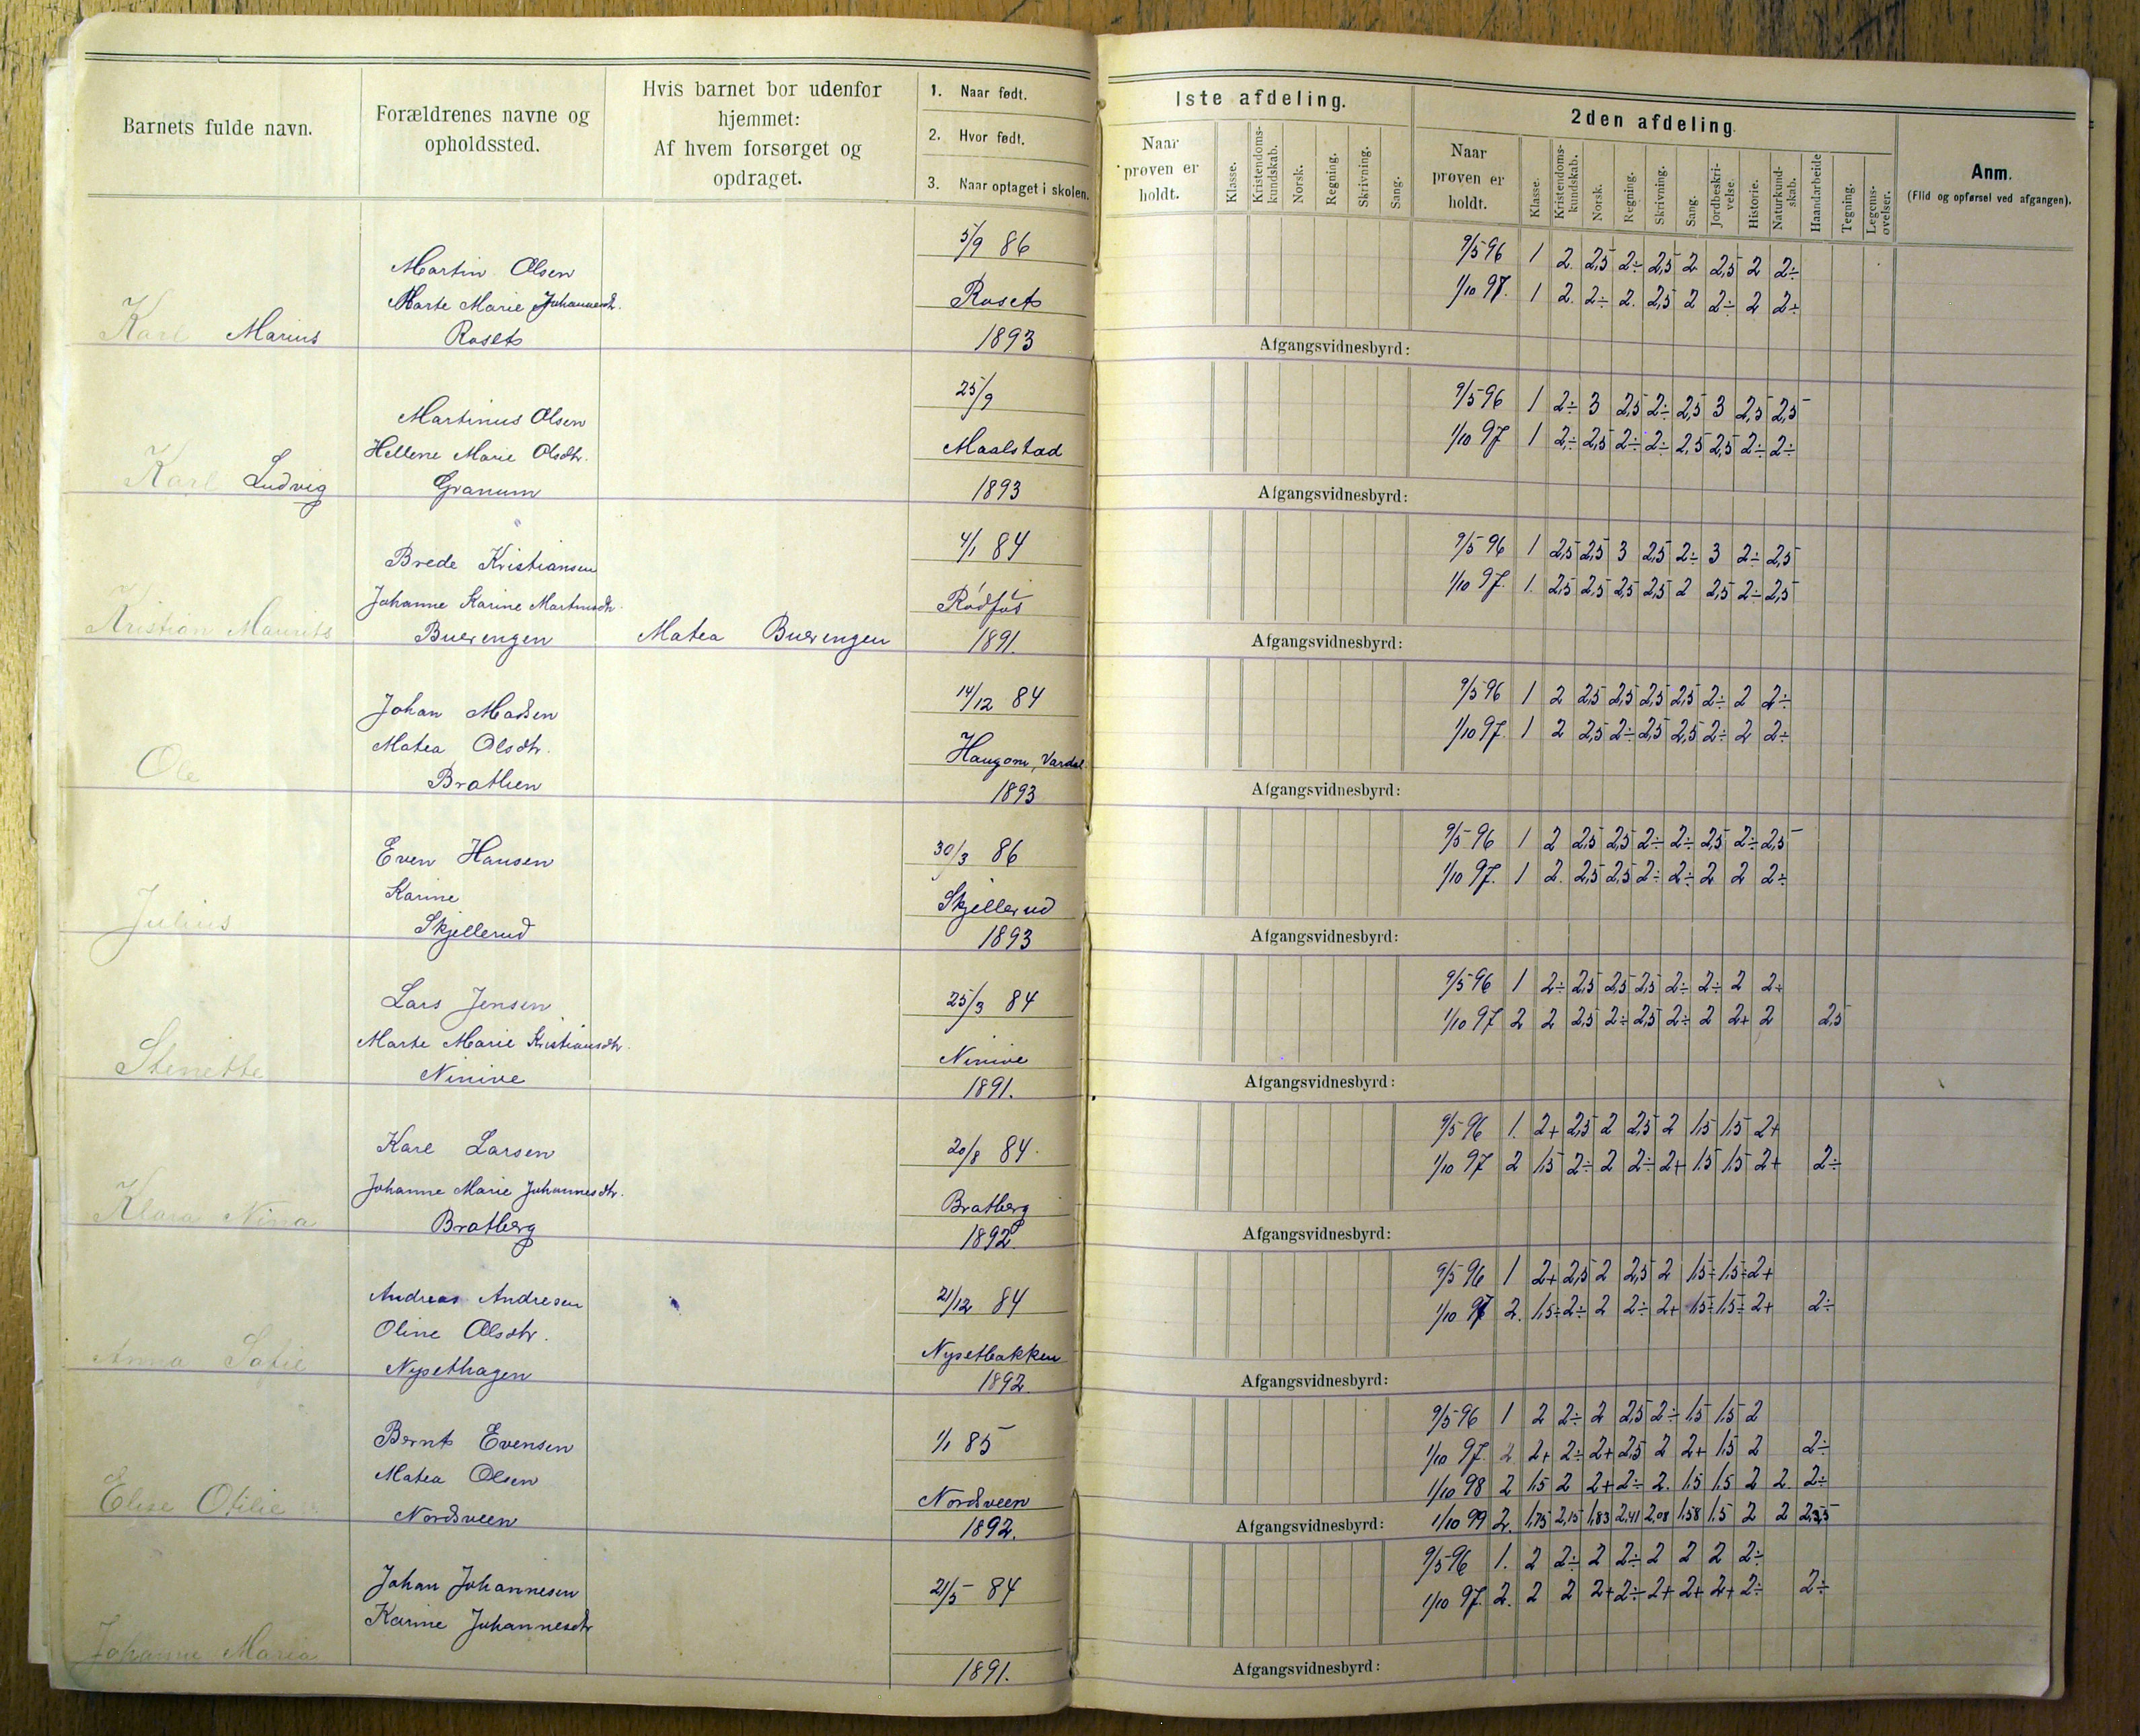 Barnets fulde navn.
Forældrenes navne og
opholdssted.
Hvis barnet bor udenfor
hjemmet:
Af hvem forsørget og
opdraget.
1. Naar født.
2. Hvor født.
3. Naar optaget i skolen.
Iste afdeling.
Naar
prøven er
holdt.
Klasse.
Kristendoms-
kundskab.
Norsk.
Regning.
Skrivning.
Sang.
2den afdeling
Naar
prøven er
holdt.
Klasse.
Kristendoms-
kundskab.
Norsk.
Regning.
Skrivning.
Sang.
Jordbeskri-
velse.
Historie.
Naturkund-
skab.
Haandarbeide
Tegning.
Legems-
øvelser.
Anm.
(Flid og opførsel ved afgangen).
Karl Marius
Martin Olsen
Marte Marie Johannesdt.
Roset
5/9 86
Roset
1893
9/5 96 1 2. 2,5 2÷ 2,5 2 2,5 2 2÷
1/10 97. 1 2. 2÷ 2. 2,5 2 2÷ 2 2÷
Afgangsvidnesbyrd:
Karl Ludvig
Martinus Olsen
Hellene Marie Olsdtr.
Granum
25/9
Maalstad
1893
9/5 96 1 2÷ 3 2,5 2÷ 2,5 3 2,5 2,5
1/10 97 1 2÷ 2,5 2÷ 2÷ 2,5 2,5 2÷ 2÷
Afgangsvidnesbyrd:
Kristian Maurits
Brede Kristiansen
Johanne Karine Martinsdtr.
Buerengen
Matea Buerengen
4/1 84
Rødfos
1891.
9/5 96 1 2,5 2,5 3 2,5 2÷ 3 2÷ 2,5
1/10 97. 1. 2,5 2,5 2,5 2,5 2 2,5 2÷ 2,5
Afgangsvidnesbyrd:
Ole
Johan Madsen
Matea Olsdtr.
Brathen
14/12 84
Haugom, Vardal.
1893
9/5 96 1 2 2,5 2,5 2,5 2,5 2÷ 2 2÷
1/10 97. 1 2 2,5 2÷ 2,5 2,5 2÷ 2 2÷
Afgangsvidnesbyrd:
Julius
Even Hansen
Karine
Skjellerud
30/3 86
Skjellerud
1893
9/5 96 1 2 2,5 2,5 2÷ 2÷ 2,5 2÷ 2,5
1/10 97. 1 2. 2,5 2,5 2÷ 2÷ 2 2 2÷
Afgangsvidnesbyrd:
Stenette
Lars Jensen
Marte Marie Kristiansdtr.
Ninive
25/3 84
Ninive
1891.
9/5 96 1 2÷ 2,5 2,5 2,5 2÷ 2÷ 2 2+
1/10 97 2 2 2,5 2÷ 2,5 2÷ 2 2+ 2 2,5
Afgangsvidnesbyrd:
Klara Nina
Karl Larsen
Johanne Marie Johannesdtr.
Bratberg
20/8 84.
Bratberg
1892.
9/5 96 1. 2+ 2,5 2 2,5 2 1,5 1,5 2+
1/10 97 2 1,5 2÷ 2 2÷ 2+ 1,5 1,5 2+ 2÷
Afgangsvidnesbyrd:
Anna Sofie
Andreas Andresen
Oline Olsdtr.
Nysethagen
21/12 84
Nysetbakken
1892.
9/5 96 1 2+ 2,5 2 2,5 2 1,5÷ 1,5÷ 2+
1/10 97 2. 1,5÷ 2÷ 2 2÷ 2+ 1,5÷ 1,5÷ 2+ 2÷
Afgangsvidnesbyrd:
Elise Otilie
Bernt Evensen
Matea Olsen
Nordsveen
1/1 85
Nordsveen
1892.
9/5 96 1 2 2÷ 2 2,5 2÷ 1,5 1,5 2
1/10 97. 2 2+ 2÷ 2+ 2,5 2 2+ 1,5 2 2÷
1/10 98 2 1,5 2 2+ 2÷ 2. 1,5 1,5 2 2. 2÷
Afgangsvidnesbyrd: 1/10 99 2. 1,75 2,15 1,83 2,41 2,08 1,58 1,5 2 2
Johanne Maria
Johan Johannesen
Karine Johannesdtr
21/5 84
1891.
9/5 96 1. 2 2÷ 2 2÷ 2 2 2 2÷
1/10 97. 2. 2 2 2+ 2÷ 2+ 2+ 2+ 2÷ 2÷
Afgangsvidnesbyrd: